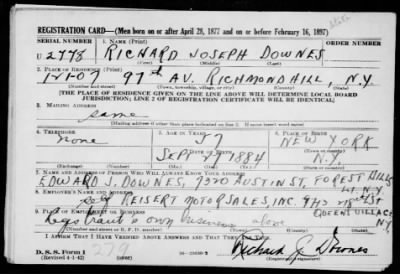 REGISTRATION CARD—(Men born on or after April 28, 1877 and on or before February 16, 1897)
SERIAL NUMBER
1. NAME (Print)
ORDER NUMBER
U 2778
RICHARD JOSEPH DOWNES
(First) (Middle) (Last)
2. PLACE OF RESIDENCE (Print)
97th AV. RICHMOND HILL, N.Y.
(Number and street) (Town, township, village, or city) (County) (State)
[THE PLACE OF RESIDENCE GIVEN ON THE LINE ABOVE WILL DETERMINE LOCAL BOARD
JURISDICTION; LINE 2 OF REGISTRATION CERTIFICATE WILL BE IDENTICAL]
3. MAILING ADDRESS
same
[Mailing address if other than place indicated on line 2. If same insert word same]
4. TELEPHONE
5. AGE IN YEARS
6. PLACE OF BIRTH
none
57
NEW YORK
DATE OF BIRTH
(Town or county)
SEPT 29 1884
N.Y.
(Exchange) (Number)
(Mo.) (Day) (Yr.)
(State or country)
7. NAME AND ADDRESS OF PERSON WHO WILL ALWAYS KNOW YOUR ADDRESS
EDWARD J. DOWNES, AUSTIN ST, FOREST HILLS
L.I. N.Y.
8. EMPLOYER'S NAME AND ADDRESS
REISERT MOTOR SALES, INC.
QUEENS VILLAGE
9. PLACE OF EMPLOYMENT OR BUSINESS
N.Y.
own business above
(Number and street or R. F. D. number) (Town) (County) (State)
I AFFIRM THAT I HAVE VERIFIED ABOVE ANSWERS AND THAT THEY ARE TRUE.
D. S. S. Form 1
(Revised 4-1-42)
Richard J. Downes
(Registrant's signature)